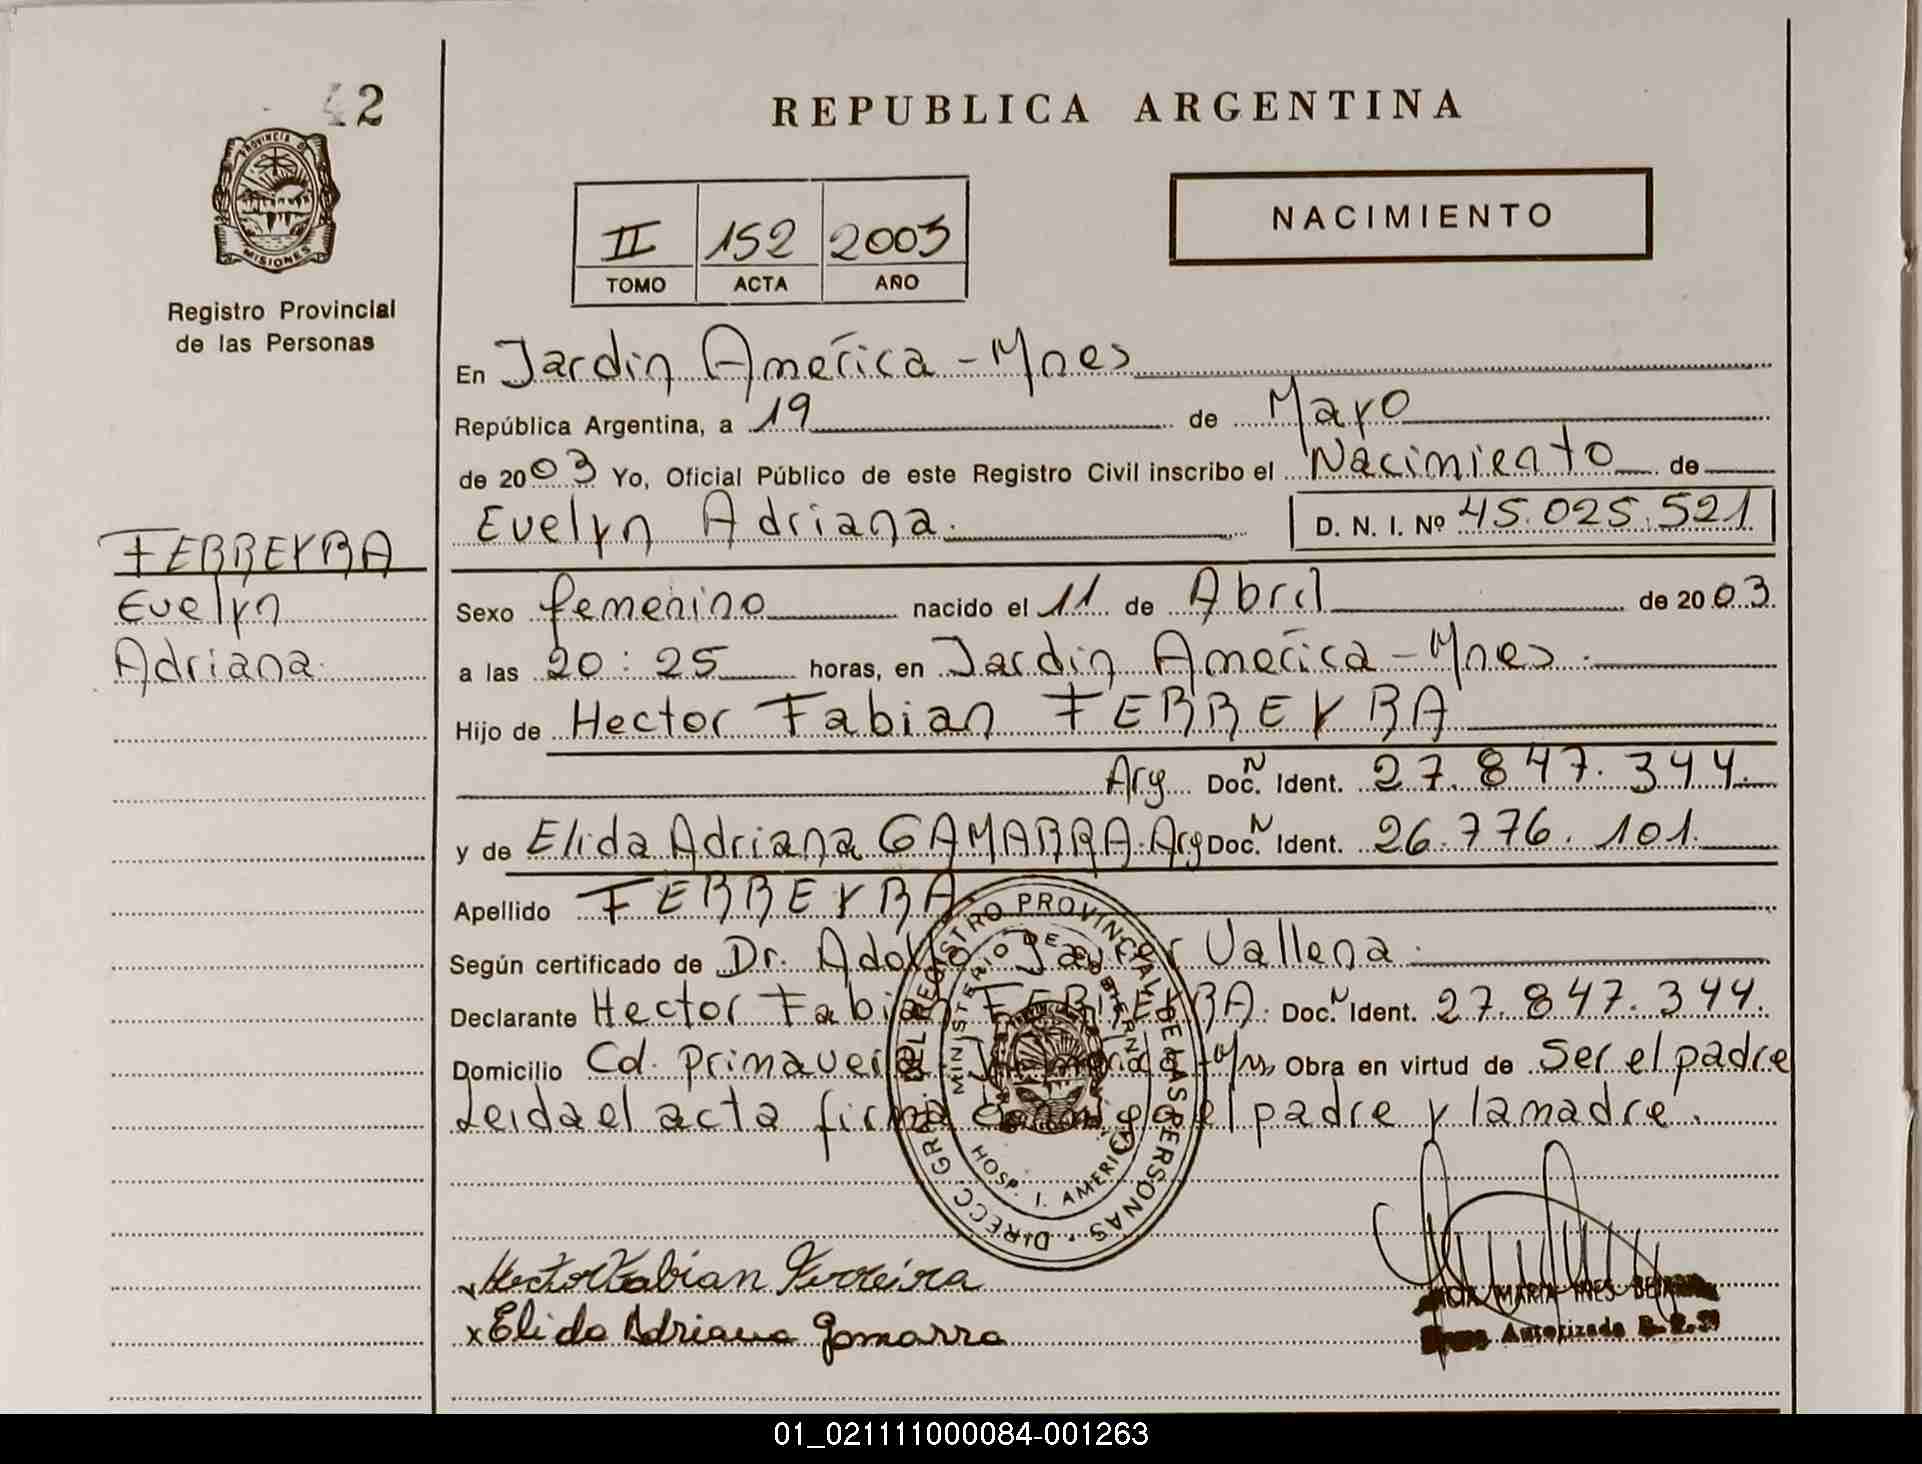 42
PROVINCIA DE
MISIONES
Registro Provincial
de las Personas
FERREYRA
Evelyn
Adriana.
REPUBLICA ARGENTINA
II 152 2003
TOMO ACTA AÑO
NACIMIENTO
En Jardin América - Mnes
República Argentina, a 19 de Mayo
de 2003 Yo, Oficial Público de este Registro Civil inscribo el Nacimiento de
Evelyn Adriana. D. N. I. Nº 45.025.521
Sexo femenino nacido el 11 de Abril de 2003.
a las 20:25 horas, en Jardin América - Mnes.
Hijo de Hector Fabian FERREYRA
Arg Doc. N Ident. 27.847.344.
y de Elida Adriana GAMARRA. Arg Doc. N Ident. 26.776.101.
Apellido FERREYRA
Según certificado de Dr. Adolfo Javier Vallena.
Declarante Hector Fabian FERREYRA. Doc. N Ident. 27.847.344.
Domicilio Cd. Primavera Obra en virtud de Ser el padre
Leida el acta firma conmigo el padre y la madre.
DIRECC. GRAL. DEL REGISTRO PROVINCIAL DE LAS PERSONAS
MINISTERIO DE GOBIERNO
HOSP. J. AMERICA
x Hector Fabian Ferreira
x Elida Adriana Gamarra
MARIA INES
Autorizada
01_021111000084-001263